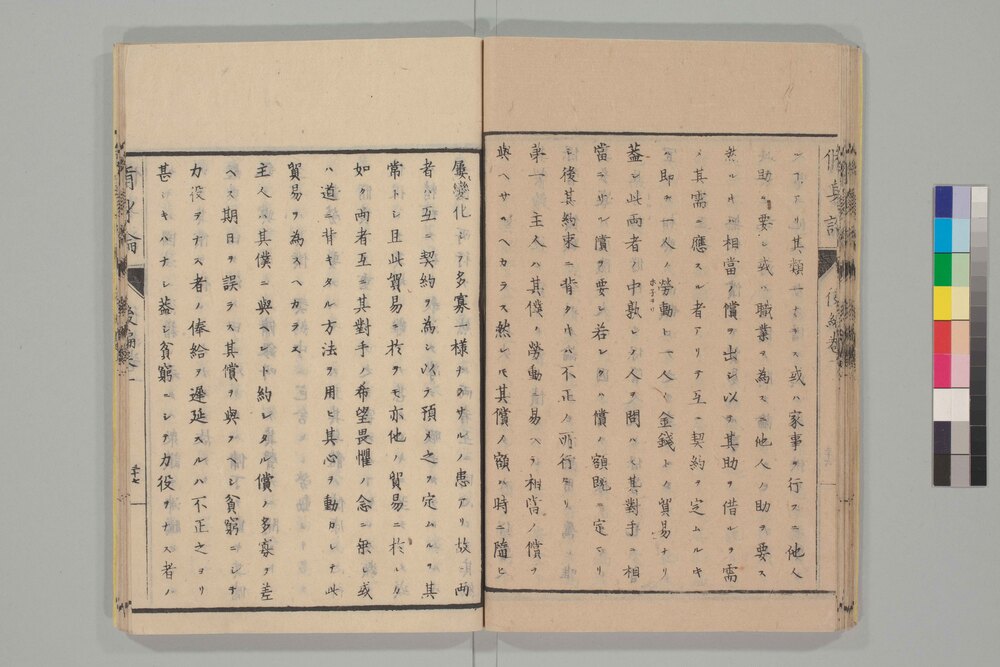 其類一ナラス或ハ家事ヲ行フニ他人
助ヲ要シ或ハ職業ヲ為スニ他人ノ助ヲ要ス
然ルニ相當ノ償ヲ出シ以テ其助ヲ借ルヲ需
メ其需ニ應スル者アリテ互ニ契約ヲ定ムルキ
ハ即チ一人ノ勞動ト一人ノ金錢トノ貿易ナリ
蓋シ此兩者ノ中孰レノ人ヲ問ハス其對手ニ相
當ナリノ償ヲ要シ若シクハ償ノ額既ニ定マリ
後其約束ニ背クキハ不正ノ所行
第一 主人ハ其僕ノ勞動ニ易ヘテ相當ノ償ヲ
與ヘサルヘカラス然レモ其償ノ額ハ時ニ隨ヒ
屢變化シテ多寡一様ナラサルノ患アリ故ニ兩
者互ニ契約ヲ為シ以テ預メ之ヲ定ムルヲ其
常トシ且此貿易ニ於テモ亦他ノ貿易ニ於ル
如ク兩者互ニ其對手ノ希望畏懼ノ念ニ乗シ或
ハ道ニ背キタル方法ヲ用ヒ其心ヲ動カシテ此
貿易ヲ為スヘカラス
主人ハ其僕ニ與ヘント約シタル償ノ多寡ヲ差
ヘス期日ヲ誤ラス其償ヲ與フヘシ貧窮ニシテ
力役ヲナス者ノ俸給ヲ遲延スルハ不正之ヨリ
甚シキハナシ蓋シ貧窮ニシテ力役ヲナス者ノ
脩身論
後編卷一